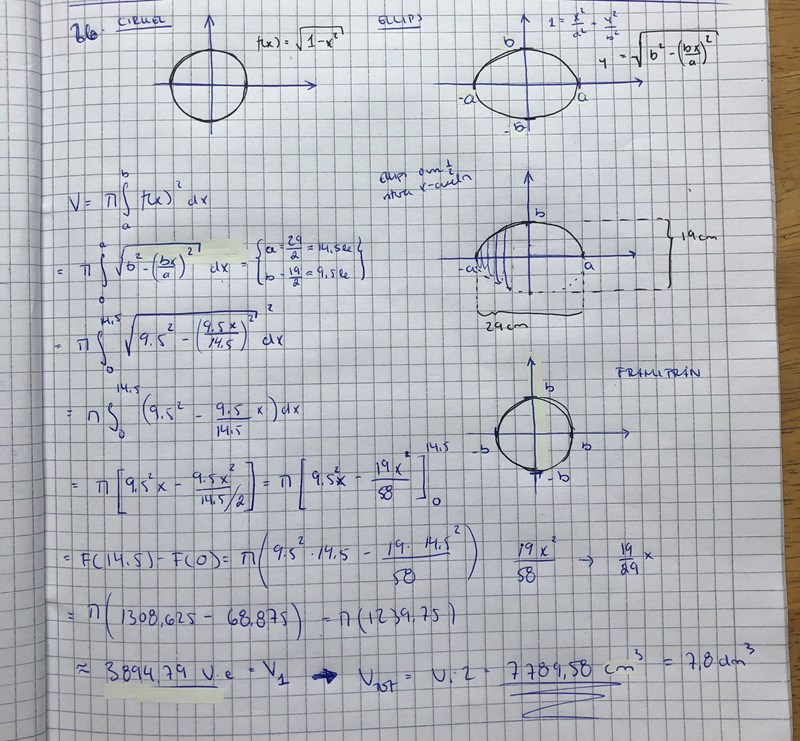 26. CIRKEL
f(x) = √(1-x²)
ELLIPS
1 = x²/a² + y²/b²
y = √(b² - (bx/a)²)
b
-a a
-b
V = π ∫ₐᵇ f(x)² dx
ellips
b
-a a
19cm
29cm
= π ∫₀ᵃ √(b² - (bx/a)²)² dx = { a = 29/2 = 14.5
b = 19/2 = 9.5 }
= π ∫₀^14.5 √(9.5² - (9.5x/14.5)²)² dx
= π ∫₀^14.5 (9.5² - 9.5/14.5 x) dx
b
-b b
-b
= π [9.5²x - 9.5x²/14.5/2] = π [9.5²x - 19x²/58]₀^14.5
= F(14.5) - F(0) = π(9.5² · 14.5 - 19 · 14.5²/58) 19x²/58 → 19/29 x
= π(1308,625 - 68,875) = π(1239,75)
≈ 3894,79 v.e = V₁ → V_TOT = V₁·2 = 7789,58 cm³ = 7,8 dm³